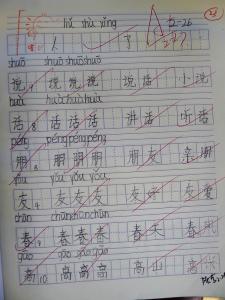 liǔ shù xǐng
12-26
shuō shuōshuōshuō
说 9 说 说 说 说话 小说
huà huàhuàhuà
话 8 话 话 话 讲话 听话
péng péngpéngpéng
朋 8 朋 朋 朋 朋友 亲朋
yǒu yǒu yǒu yǒu
友 4 友 友 友 友好 友爱
chūn chūnchūnchūn
春 9 春 春 春 春天 春风
gāo gāo gāo gāo
高 10 高 高 高 高山